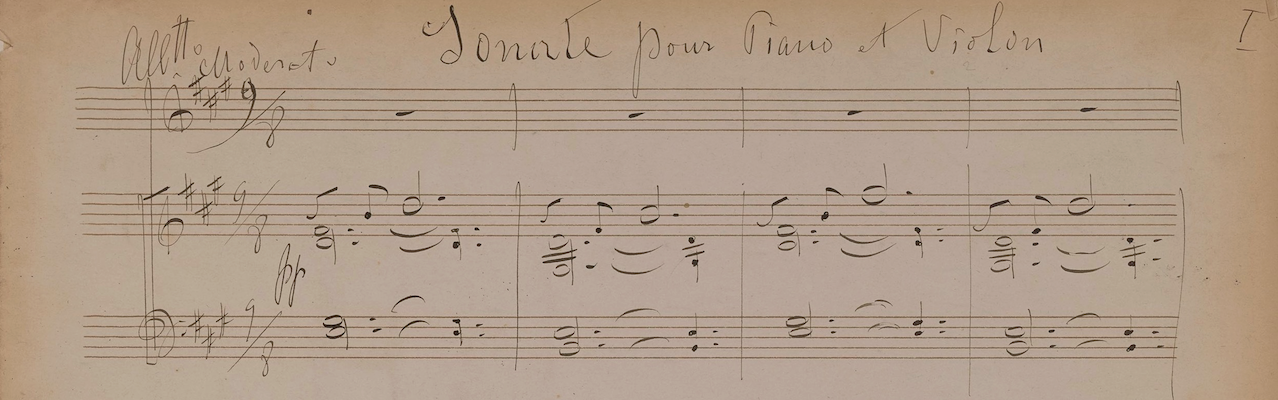 Sonate pour Piano et Violon
I
Alltto Moderato
9/8
9/8
pp
9/8